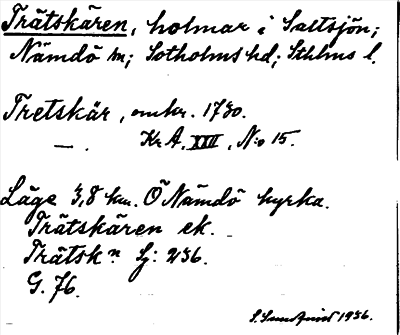 Trätskären, holmar i Saltsjön;
Nämdö sn; Sotholms hd; Sthlms l.
Tretskär, omkr. 1730.
— . Kr A. XXII, N:o 15.
Läge 3,8 km. Ö Nämdö kyrka.
Trätskären ek.
Trätsk n Sj: 236.
G. 76.
S. Sundqvist 1936.